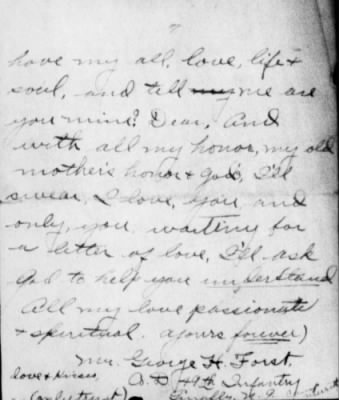 7
have my all, love, life &
soul, and tell my me are
you mine? Dear, And
with all my honor, my old
mother's honor & god's, I'll
swear, I love, you, and
only, you, waiting for
a letter of love, I'll ask
God to help you understand
All my love passionate
& spiritual. Yours forever)
Mr. George H. Forst
love & kisses, Co. D 49th Infantry
(only trust)